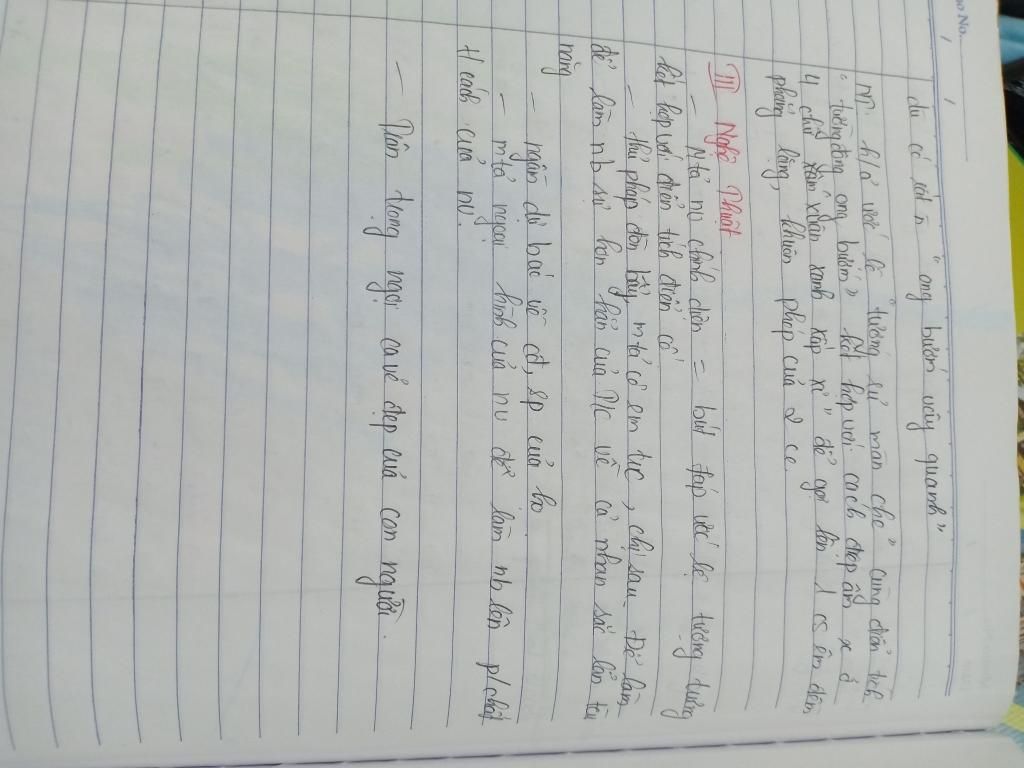 No.
dù có tới n " ong bướm vây quanh"
NT: h/ả ước lệ " tướng rủ màn che" cùng điển tích
" tường đông ong bướm" kết hợp với cách điệp âm x ở
4 chữ xuân xanh xấp xỉ " để gợi lên 1 cs êm đềm
phẳng lặng, khuôn phép của 2 ce.
III Nghệ Thuật
- Mtả nv chính diện = bút pháp ước lệ tượng trưng
kết hợp với điển tích điển cố
- thủ pháp đòn bẩy mtả cô em trc, chị sau. Để làm
để làm nb sự hơn hẳn của Tk về cả nhan sắc lẫn tài
năng
- ngầm dự báo về cđ, sp của họ
- mtả ngoại hình của nv để làm nb lên p/chất
tí cách của nv.
- Trân trọng ngợi ca vẻ đẹp của con người.